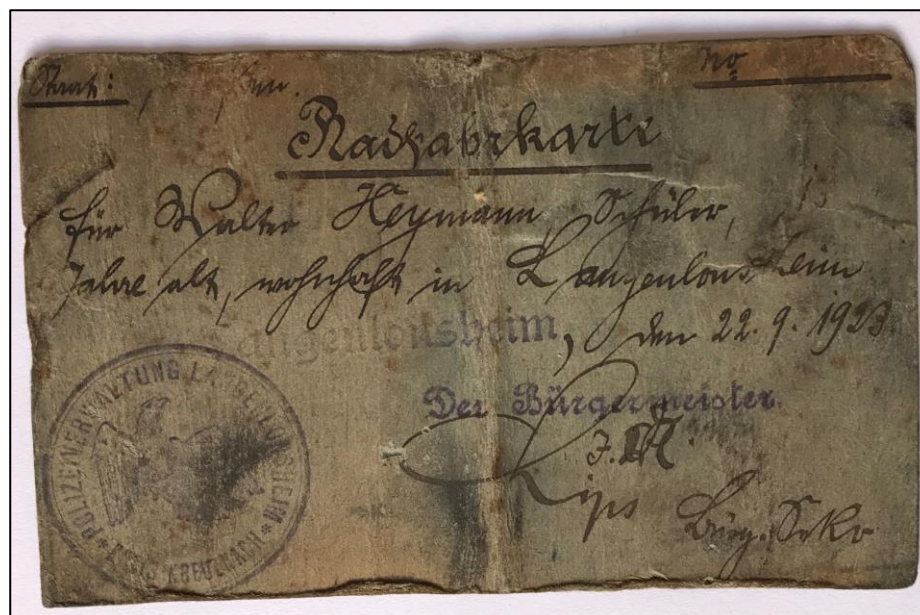 Staat: No
Radfahrkarte
für Walter Heymann, Schüler, 13
Jahre alt, wohnhaft in Langenlonsheim
Langenlonsheim, den 22. 9. 1923.
Der Bürgermeister.
J.
Lips Bürg. Sekr.
POLIZEIVERWALTUNG LANGENLONSHEIM
KREUZNACH